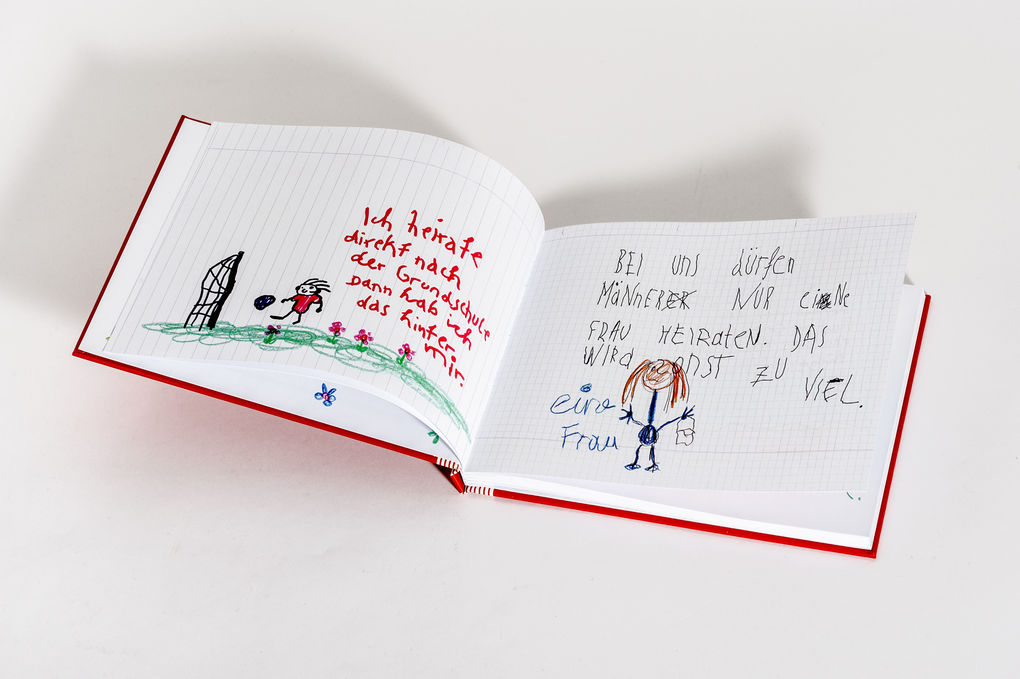 Ich heirate
direkt nach
der Grundschule
Dann hab ich
das hinter
mir.
BEI UNS dürfen
MäNNER NUR eiNe
FRAU HEIRATEN. DAS
WIRd ONST ZU
VIEL.
eine
Frau